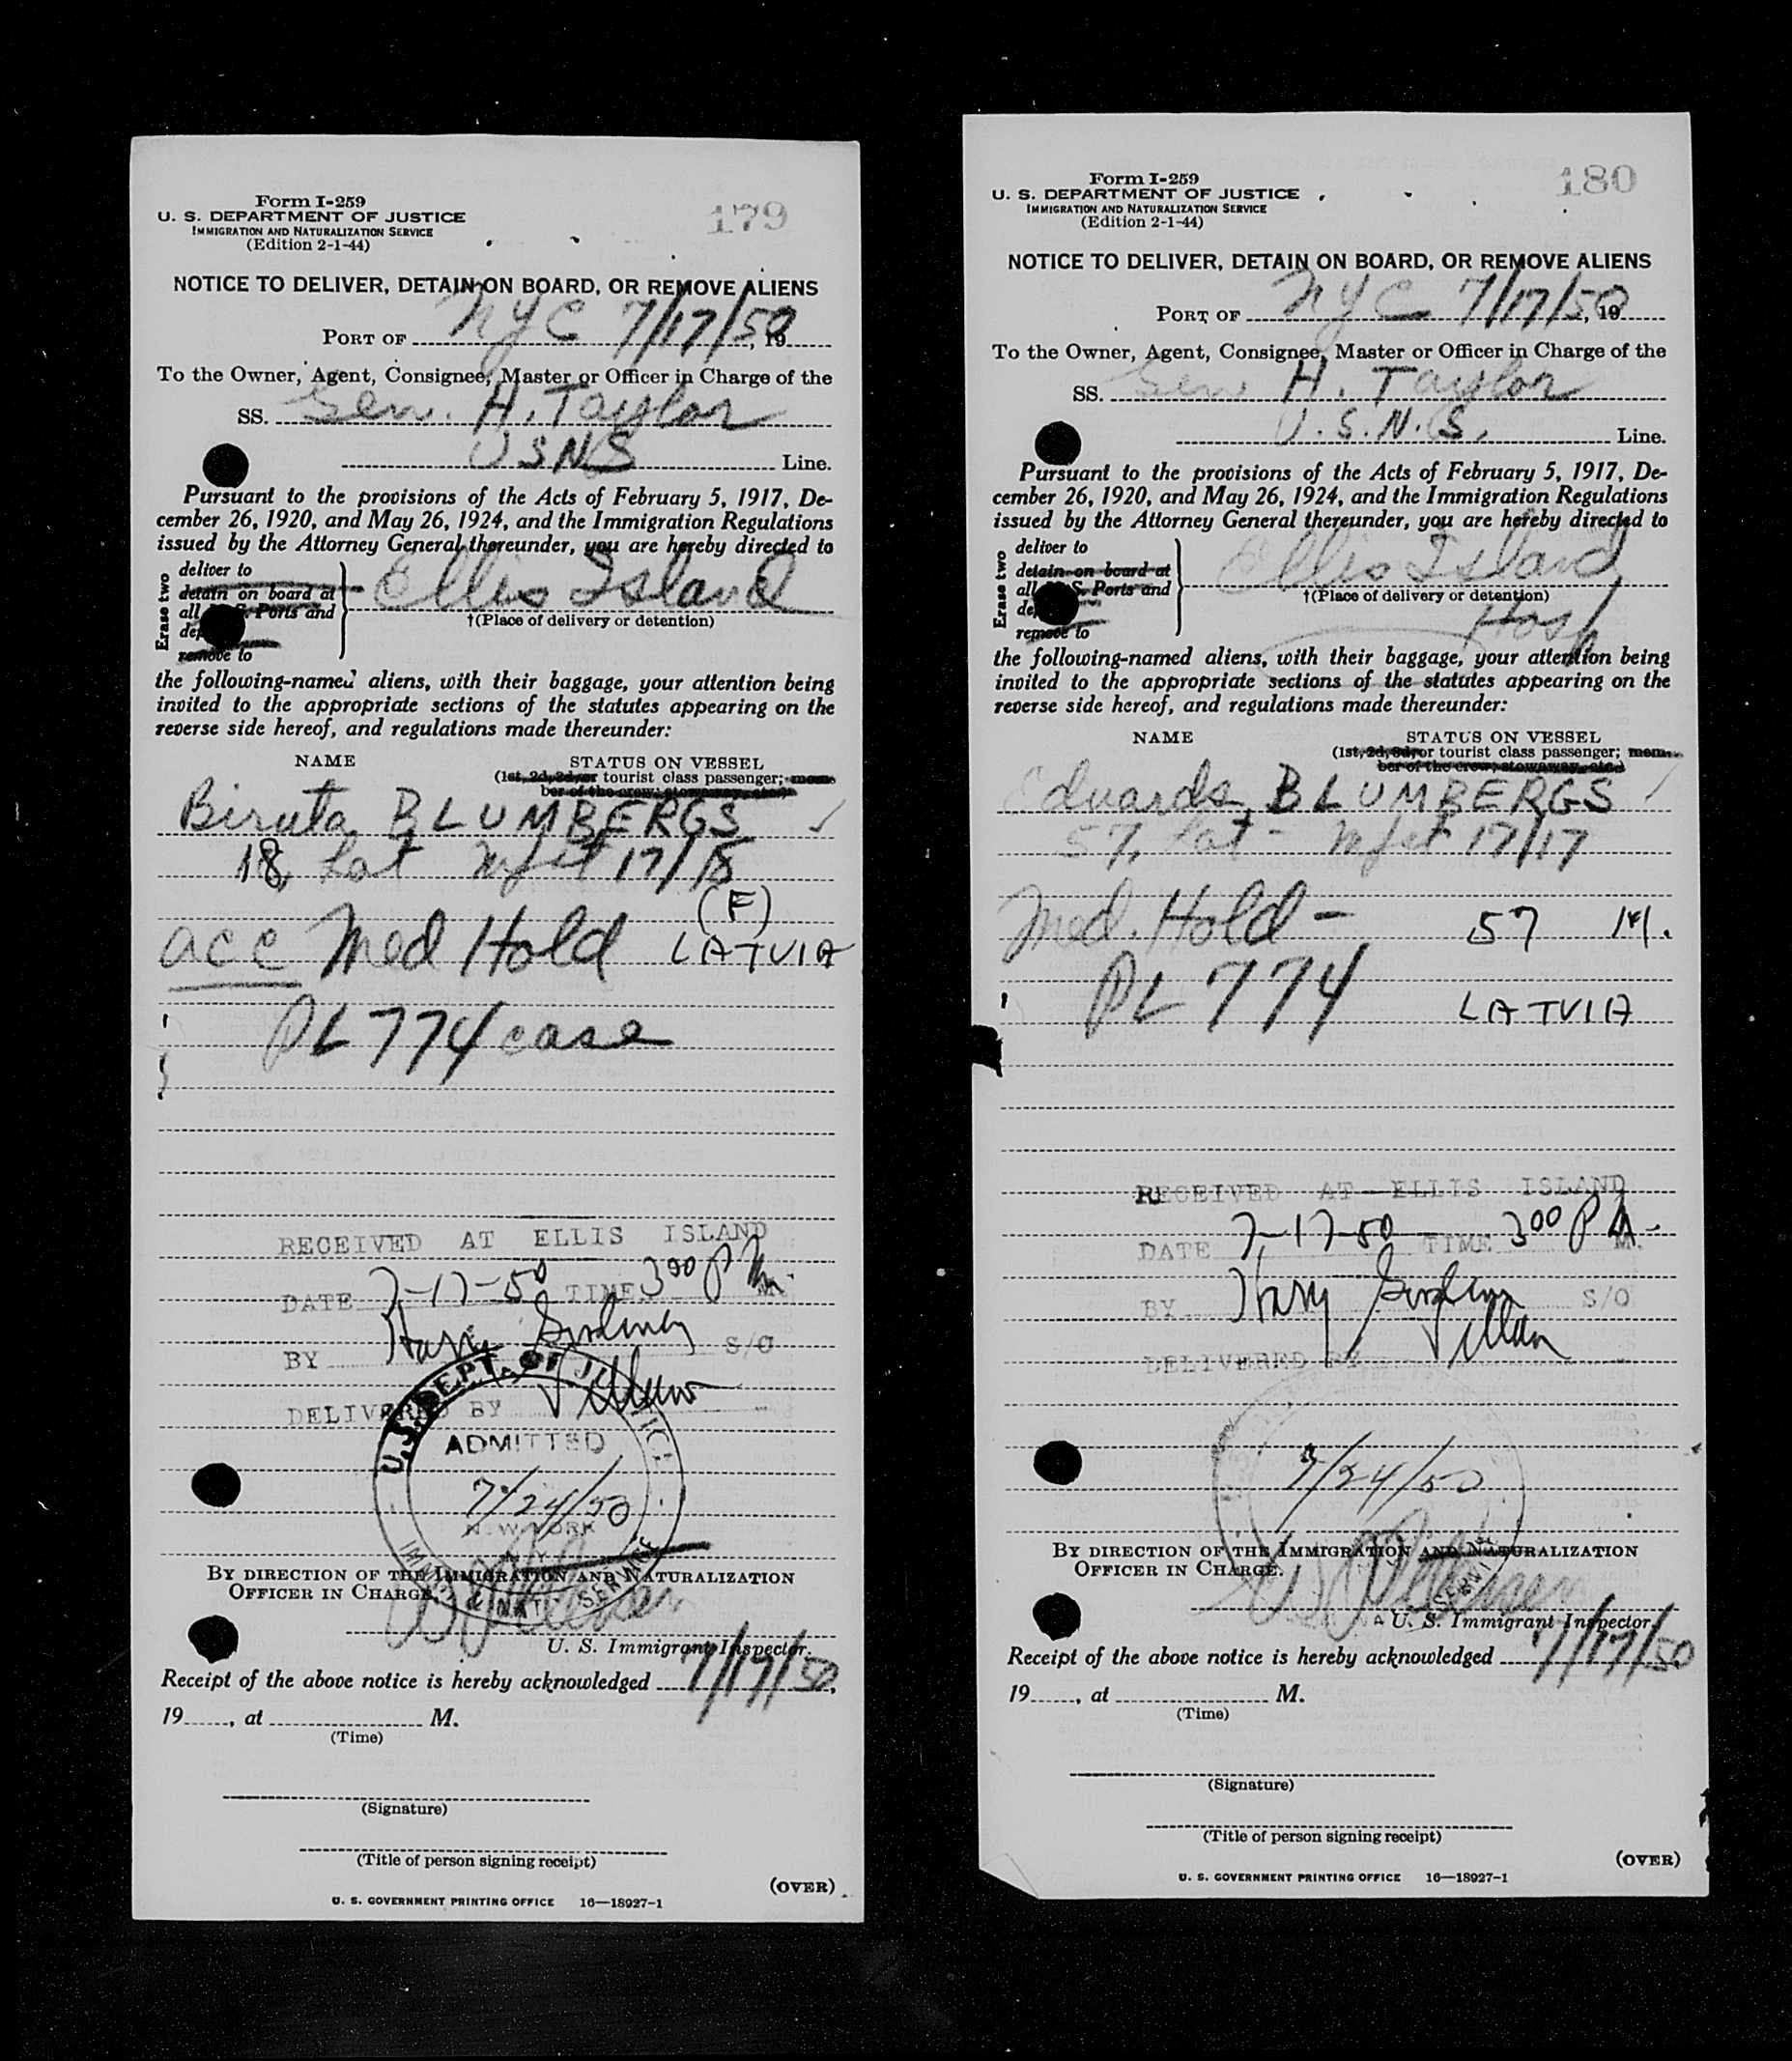 Form I-259
U. S. DEPARTMENT OF JUSTICE
IMMIGRATION AND NATURALIZATION SERVICE
(Edition 2-1-44)
179
NOTICE TO DELIVER, DETAIN ON BOARD, OR REMOVE ALIENS
PORT OF NYC 7/17/50, 19
To the Owner, Agent, Consignee, Master or Officer in Charge of the
SS. Gen. H. Taylor
USNS Line.
Pursuant to the provisions of the Acts of February 5, 1917, De-
cember 26, 1920, and May 26, 1924, and the Immigration Regulations
issued by the Attorney General thereunder, you are hereby directed to
Erase two
deliver to
detain on board at
all U. S. Ports and
remove to
Ellis Island
†(Place of delivery or detention)
the following-named aliens, with their baggage, your attention being
invited to the appropriate sections of the statutes appearing on the
reverse side hereof, and regulations made thereunder:
NAME STATUS ON VESSEL
(1st, 2d, 3d, or tourist class passenger; mem-
ber of the crew; stowaway, etc.)
Biruta BLUMBERGS ✓
18, Lat Mfst 17/18
(F)
acc Med Hold LATVIA
PL 774 case
RECEIVED AT ELLIS ISLAND
DATE 7-17-50 TIME 300 P M.
BY Harry S/O
DELIVERED BY
U.S. DEPT. OF JUSTICE
ADMITTED
7/24/50
NEW YORK
IMMIG. & NAT. SERVICE
BY DIRECTION OF THE IMMIGRATION AND NATURALIZATION
OFFICER IN CHARGE.
U. S. Immigrant Inspector.
Receipt of the above notice is hereby acknowledged 7/17/50,
19, at M.
(Time)
(Signature)
(Title of person signing receipt)
(OVER)
U. S. GOVERNMENT PRINTING OFFICE 16—18927-1
Form I-259
U. S. DEPARTMENT OF JUSTICE
IMMIGRATION AND NATURALIZATION SERVICE
(Edition 2-1-44)
180
NOTICE TO DELIVER, DETAIN ON BOARD, OR REMOVE ALIENS
PORT OF NYC 7/17/50, 19
To the Owner, Agent, Consignee, Master or Officer in Charge of the
SS. Gen H. Taylor
U.S.N.S. Line.
Pursuant to the provisions of the Acts of February 5, 1917, De-
cember 26, 1920, and May 26, 1924, and the Immigration Regulations
issued by the Attorney General thereunder, you are hereby directed to
Erase two
deliver to
detain on board at
all U. S. Ports and
remove to
Ellis Island
†(Place of delivery or detention)
Hosp
the following-named aliens, with their baggage, your attention being
invited to the appropriate sections of the statutes appearing on the
reverse side hereof, and regulations made thereunder:
NAME STATUS ON VESSEL
(1st, 2d, 3d, or tourist class passenger; mem-
ber of the crew; stowaway, etc.)
Eduards BLUMBERGS ✓
57, Lat - Mfst 17/17
Med. Hold - 57 M.
PL 774 LATVIA
RECEIVED AT ELLIS ISLAND
DATE 7-17-50 TIME 300 P M.
BY Harry S/O
DELIVERED BY
7/24/50
BY DIRECTION OF THE IMMIGRATION AND NATURALIZATION
OFFICER IN CHARGE.
U. S. Immigrant Inspector.
Receipt of the above notice is hereby acknowledged 7/17/50
19, at M.
(Time)
(Signature)
(Title of person signing receipt)
(OVER)
U. S. GOVERNMENT PRINTING OFFICE 16—18927-1